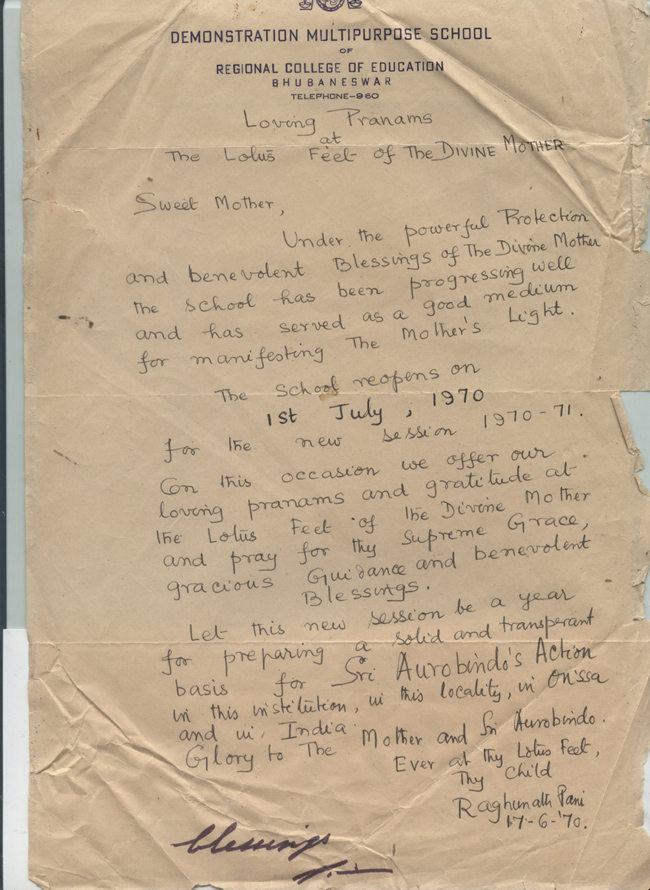 DEMONSTRATION MULTIPURPOSE SCHOOL
OF
REGIONAL COLLEGE OF EDUCATION
BHUBANESWAR
TELEPHONE-960
Loving Pranams
at
The Lotus Feet of The DIVINE MOTHER
Sweet Mother,
Under the powerful Protection
and benevolent Blessings of The Divine Mother
the school has been progressing well
and has served as a good medium
for manifesting The Mother's Light.
The School reopens on
1st July, 1970
for the new session 1970-71.
On this occasion we offer our
loving pranams and gratitude at
the Lotus Feet of the Divine Mother
and pray for thy Supreme Grace,
gracious Guidance and benevolent
Blessings.
Let this new session be a year
for preparing a solid and transperant
basis for Sri Aurobindo's Action
in this institution, in this locality, in Orissa
and in India.
Glory to The Mother and Sri Aurobindo.
Ever at thy Lotus Feet,
Thy Child
Raghunath Pani
17-6-'70.
blessings